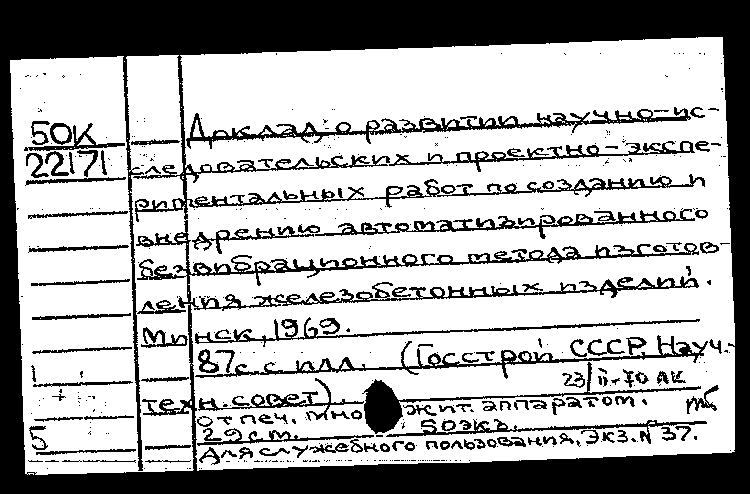 50К
22171
Доклад о развитии научно-ис-
следовательских и проектно-экспе-
риментальных работ по созданию и
внедрению автоматизированного
безвибрационного метода изготов-
ления железобетонных изделий.
Минск, 1969.
87с. с илл. (Госстрой СССР. Науч.-
техн. совет).
23/II-70 АК
отпеч. мно жит. аппаратом.
29 см. 50экз.
Для служебного пользования, Экз. N 37.
1
5